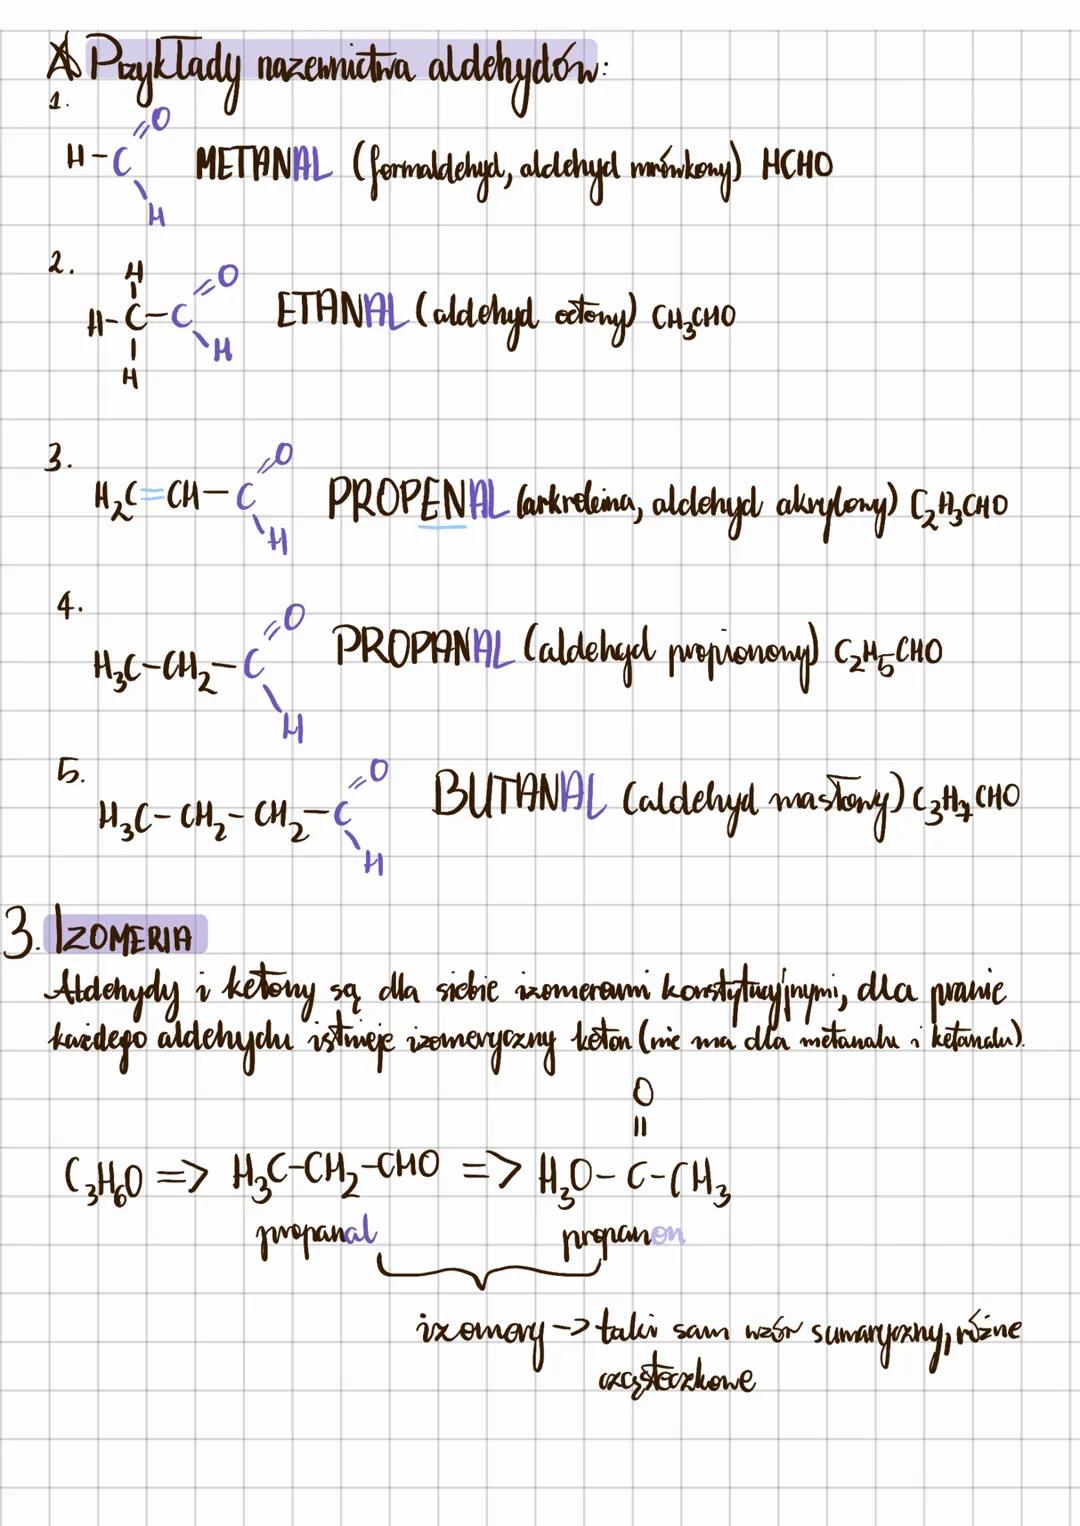 A Przykłady nazewnictwa aldehydów:
1.
H-C=O
H
METANAL (formaldehyd, aldehyd mrówkowy) HCHO
2.
H
H-C-C=O
H
H
ETANAL (aldehyd octowy) CH₃CHO
3.
H₂C=CH-C=O
H
PROPENAL (arkroleina, aldehyd akrylowy) C₂H₃CHO
4.
H₃C-CH₂-C=O
H
PROPANAL (aldehyd propionowy) C₂H₅CHO
5.
H₃C-CH₂-CH₂-C=O
H
BUTANAL (aldehyd masłowy) C₃H₇CHO
3. IZOMERIA
Aldehydy i ketony są dla siebie izomerami konstytucyjnymi, dla prawie
każdego aldehydu istnieje izomeryczny keton (nie ma dla metanalu i ketanalu).
O
=
C₃H₆O => H₃C-CH₂-CHO => H₃O-C-CH₃
propanal propanon
izomery -> taki sam wzór sumaryczny, różne
cząsteczkowe